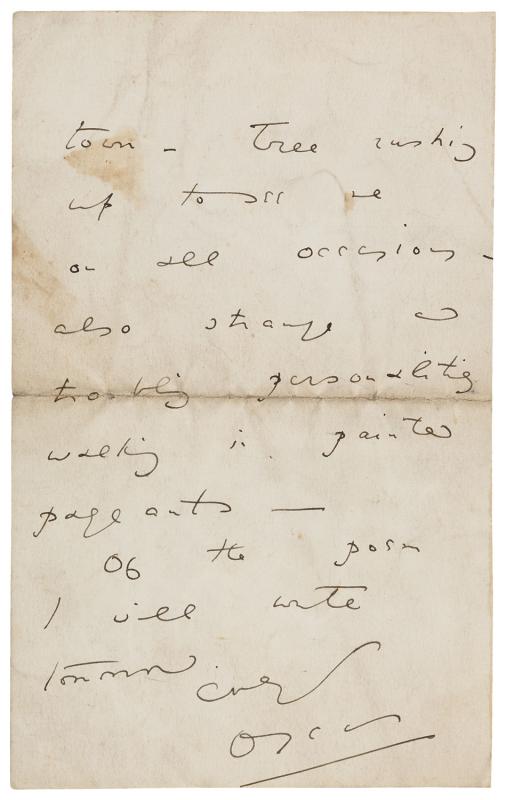 town – Tree rushing
up to see me
on all occasions –
also strange and
troubling personalities
walking in painted
pageants —
Of the poem
I will write
tomorrow ever
Oscar